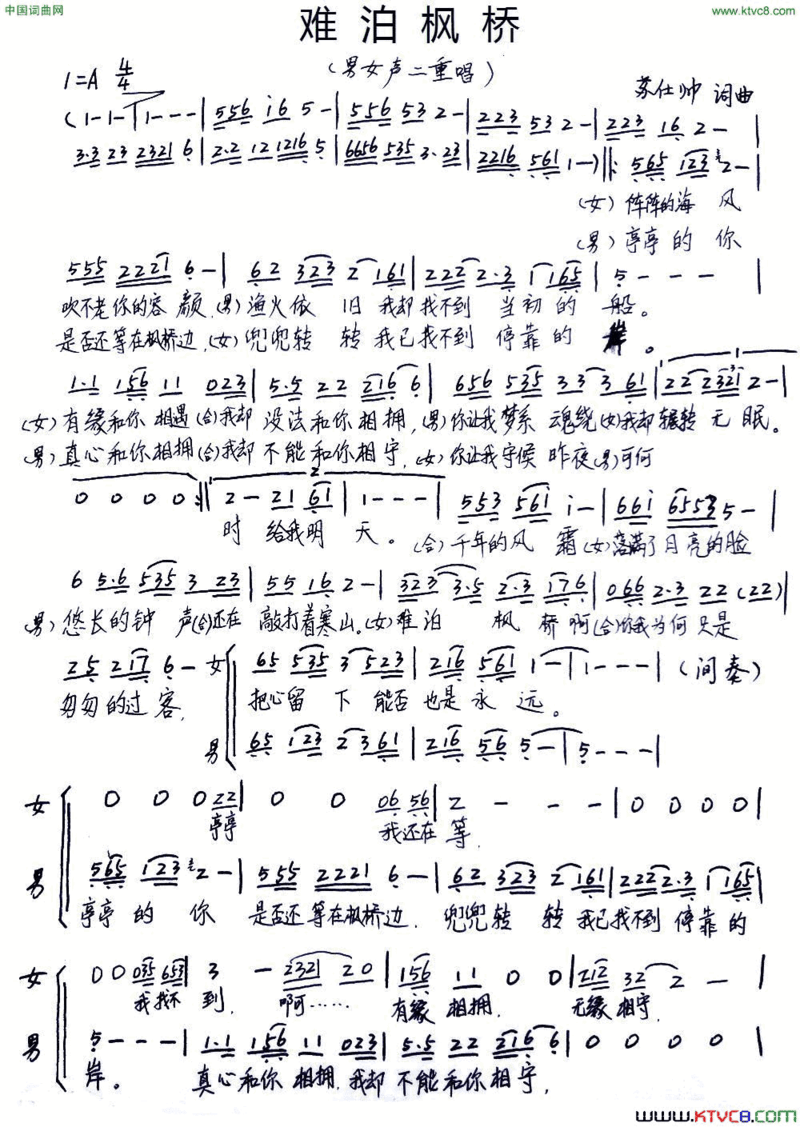 中国词曲网
www.ktvc8.com
难泊枫桥
(男女声二重唱)
1=A 4/4
苏仕帅 词曲
(1-1-|1---|556 i6 5-|556 53 2-|223 53 2-|223 16 2-|
3·3 23 2321 6|2·2 12 1216 5|6656 535 3·23|2216 561 1-)‖: 565 123 2-|
(女)阵阵的海 风
(男)亭亭的 你
555 2221 6-|62 323 2 161|222 2·3 1 165|5---|
吹不老你的容颜,(男)渔火依 旧 我却找不到 当初的 船。
是否还等在枫桥边,(女)兜兜转 转 我已找不到 停靠的 岸。
1·1 156 11 023|5·5 22 216 6|656 535 33 3 61|22 2321 2-|
(女)有缘和你 相遇(合)我却 没法和你相拥,(男)你让我梦系 魂绕(女)我却辗转 无眠。
(男)真心和你 相拥(合)我却 不能和你相守,(女)你让我守候 昨夜(男)可何
0 0 0 0:‖2- 21 61|1---|553 561 i-|66i 6553 5-|
时 给我明 天。(合)千年的风 霜(女)落满了月亮的脸
6 5·6 535 3 23|55 16 2-|323 3·5 2·3 176|066 2·3 22 (22)|
(男)悠长的钟 声(合)还在 敲打着寒山。(女)难泊 枫 桥啊(合)你我当何只是
25 217 6-
女 65 535 3 523|216 561 1-|1---|(间奏)
匆匆的过 客,
把心留 下 能否 也是永 远。
男 65 123 2 361|216 56 5-|5---|
女 0 0 0 22|0 0 06 56|2 - - -|0 0 0 0|
亭亭 我还在 等,
男 565 123 2-|555 2221 6-|62 323 2 161|222 2·3 1 165|
亭亭的 你 是否还等在枫桥边, 兜兜转 转 我已找不到 停靠的
女 00 035 653|3 - 2321 20|156 11 0 0|212 32 2 -|
我 我找不 到, 啊…… 有缘 相拥, 无缘 相守,
男 5---|1·1 156 11 023|5·5 22 216 6|0 0 0 0|
岸。 真心和你 相拥,我却 不能和你相守,
WWW.KTVC8.COM